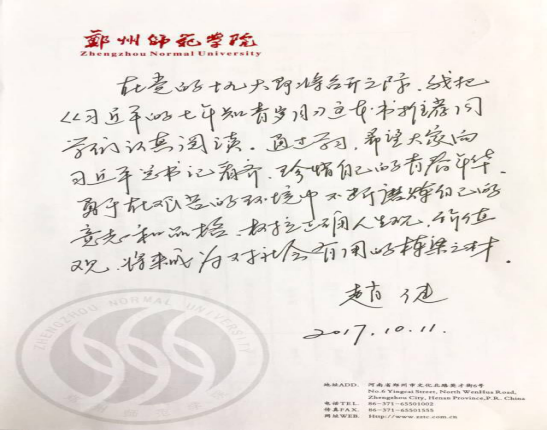 郑州师范学院
Zhengzhou Normal University
在党的十九大即将召开之际，我把
《习近平的七年知青岁月》这本书推荐给同
学们认真阅读。通过学习，希望大家向
习近平总书记看齐，珍惜自己的青春年华，
勇于在艰苦的环境中不断磨炼自己的
意志和品格，树立正确人生观、价值
观，将来成为对社会有用的栋梁之才。
赵健
2017.10.11.
ZHENGZHOU NORMAL UNIVERSITY
地址ADD. 河南省郑州市文化北路英才街6号
No.6 Yingcai Street, North WenHua Road,
Zhengzhou City, Henan Province,P.R. China
电话TEL. 86-371-65501002
传真FAX. 86-371-65501555
网址WEB. Http://www.zztc.com.cn